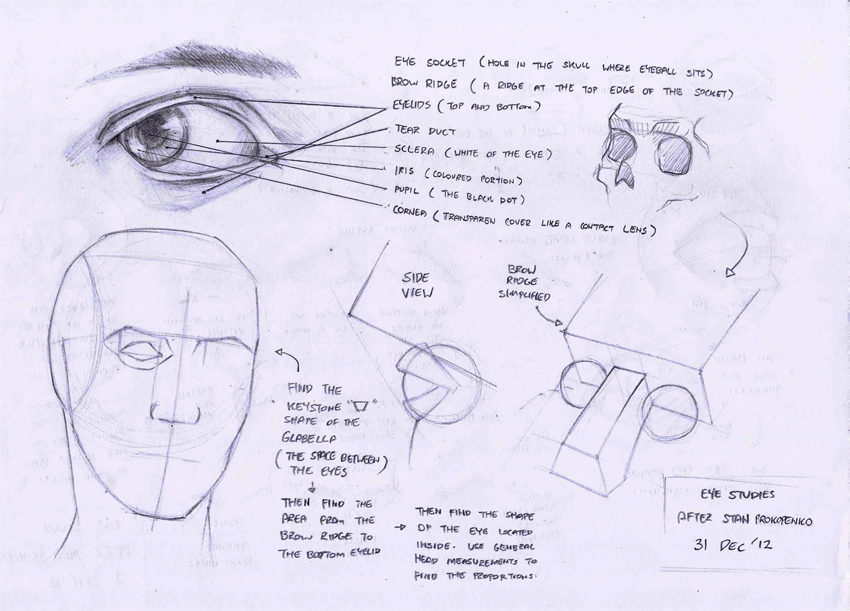 EYE SOCKET (HOLE IN THE SKULL WHERE EYEBALL SITS)
BROW RIDGE (A RIDGE AT THE TOP EDGE OF THE SOCKET)
EYELIDS (TOP AND BOTTOM)
TEAR DUCT
SCLERA (WHITE OF THE EYE)
IRIS (COLOURED PORTION)
PUPIL (THE BLACK DOT)
CORNEA (TRANSPAREN COVER LIKE A CONTACT LENS)
SIDE
VIEW
BROW
RIDGE
SIMPLIFIED
FIND THE
KEYSTONE " "
SHAPE OF THE
GLABELLA
(THE SPACE BETWEEN)
THE EYES
THEN FIND THE
AREA FROM THE
BROW RIDGE TO
THE BOTTOM EYELID
THEN FIND THE SHAPE
OF THE EYE LOCATED
INSIDE. USE GENERAL
HEAD MEASUREMENTS TO
FIND THE PROPORTIONS.
EYE STUDIES
AFTER STAN PROKOPENKO
31 DEC '12